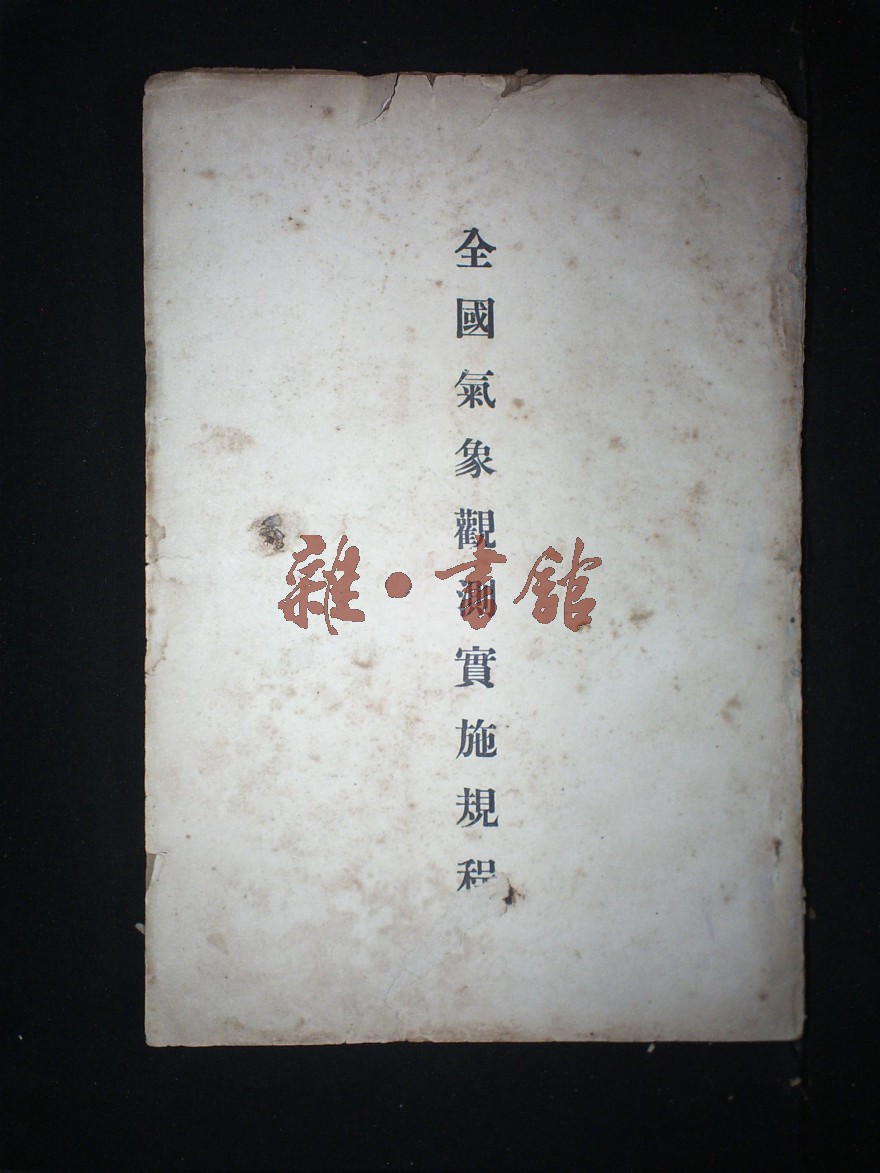 全國氣象觀測實施規程
雜·書館